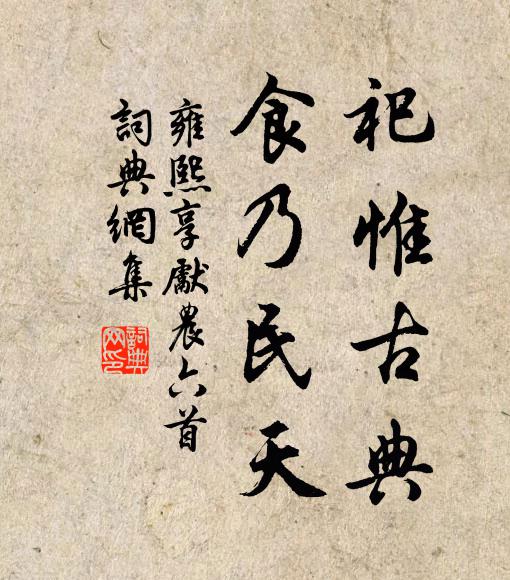 祀惟古典
食乃民天
雍熙享獻農六首
詞典網集
詞典網印